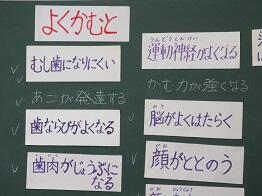 よくかむと
むし歯になりにくい
あごが発達する
歯ならびがよくなる
歯肉がじょうぶに
なる
うんどうしんけい
運動神経がよくなる
かむ力が強くなる
のう
脳がよくはたらく
かお
顔がととのう